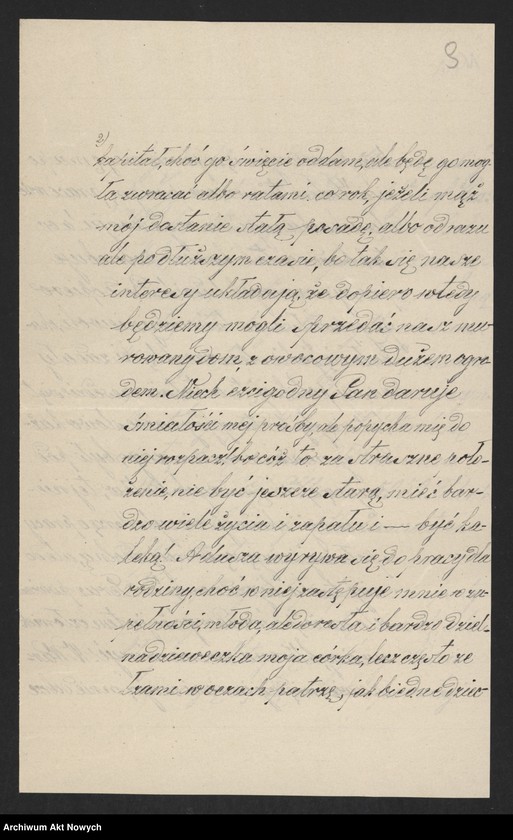 3
2)
kapitał, choć go święcie oddam, ale będę go mog-
ła zwracać albo ratami co rok, jeżeli mąż
mój dostanie stałą posadę, albo odrazu
ale po dłuższym czasie, bo tak się nasze
interesy układają, że dopiero wtedy
będziemy mogli sprzedać nasz mu-
rowany dom, z owocowym dużem ogro-
dem. Niech czcigodny Pan daruje
śmiałości mej prośby, ale popycha mię do
niej rozpacz! bo cóż to za straszne poło-
żenie, nie być jeszcze starą, mieć bar-
dzo wiele życia i zapału i — być ka-
leką! A dusza wyrywa się do pracy dla
rodziny, choć w niej zastępuje mnie w zu-
pełności, młoda, ale dorosła i bardzo dziel-
na dzieweczka moja córka, lecz często ze
łzami w oczach patrzę, jak biedne dziec-
Archiwum Akt Nowych